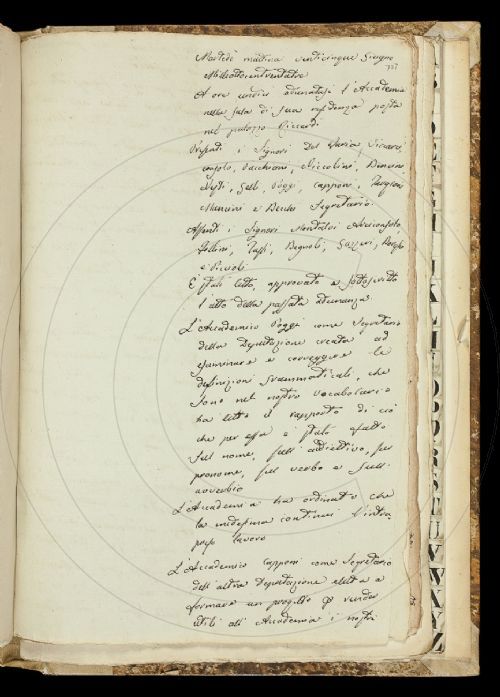 Martedì mattina venticinque Giugno
Milleottocentotrentatre
A ore undici adunatasi l'Accademia
nella sala di sua residenza posta
nel palazzo Riccardi
Presenti i Signori Del Furia Vicearci-
consolo, Bacchioni, Niccolini, Bencini
Nesti, Gelli, Poggi, Capponi, Targioni
Mancini e Becchi Segretario.
Assenti i Signori Montalvi Arciconsolo,
Follini, Tassi, Bagnoli, Gazzeri,
e Piccioli
È stato letto, approvato e sottoscritto
l'atto della passata adunanza
L'Accademico Poggi come Segretario
della Deputazione creata ad
esaminare e correggere le
definizioni Grammaticali, che
sono nel nostro vocabolario
ha letto il rapporto di ciò
che per essa è stato fatto
sul nome, sull' addiettivo, sul
pronome, sul verbo e sull'
avverbio
L'Accademia ha ordinato che
la medesima continui l'intra
preso lavoro
L'Accademico Capponi come Segretario
dell'altra Deputazione eletta a
formare un progetto p render
utili all'Accademia i nostri
D
E
F
G
I
K
L
O
P
Q
R
S
T
U
V
W
X
Y
Z